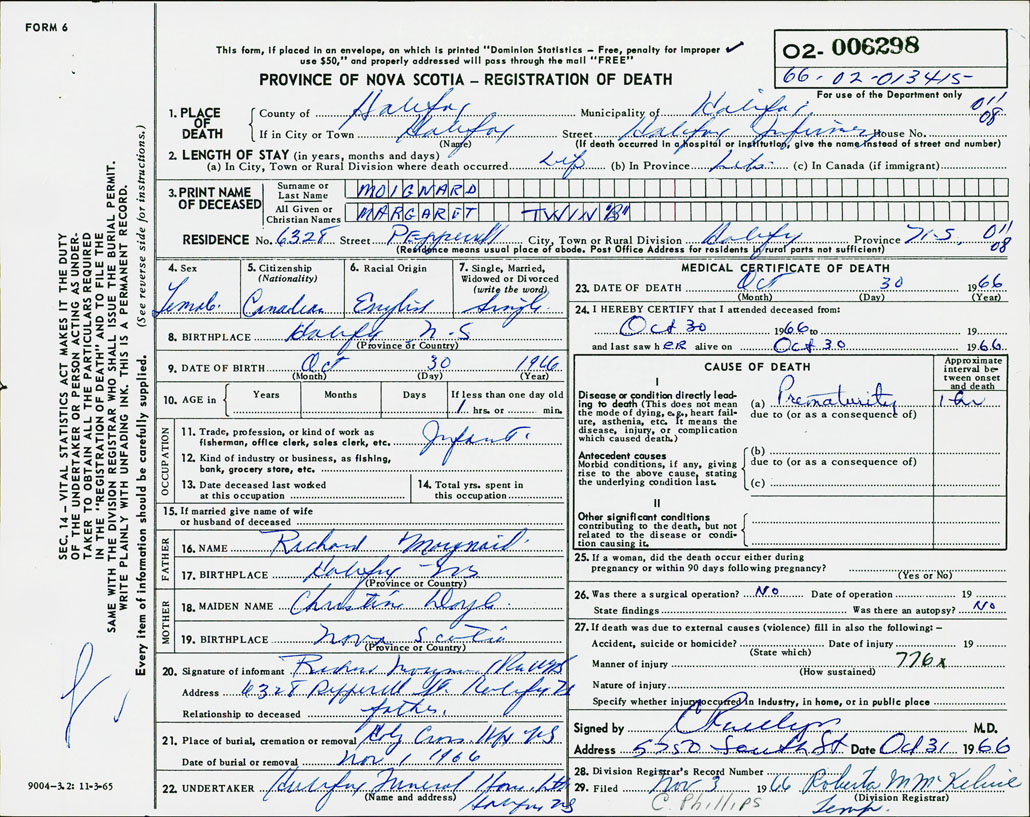 FORM 6
This form, if placed in an envelope, on which is printed "Dominion Statistics – Free, penalty for improper
use $50," and properly addressed will pass through the mail "FREE"
PROVINCE OF NOVA SCOTIA – REGISTRATION OF DEATH
02- 006298
66-02-013415-
For use of the Department only
1. PLACE OF DEATH
County of Halifax Municipality of Halifax 011
If in City or Town Halifax Street Halifax Infirmary House No. 08
(Name) (If death occurred in a hospital or institution, give the name instead of street and number)
2. LENGTH OF STAY (in years, months and days)
(a) In City, Town or Rural Division where death occurred Life (b) In Province Life (c) In Canada (if immigrant)
3. PRINT NAME OF DECEASED
Surname or Last Name MOIGNARD
All Given or Christian Names MARGARET TWIN "B"
RESIDENCE No. 6328 Street Pepperell City, Town or Rural Division Halifax Province N.S. 011
(Residence means usual place of abode. Post Office Address for residents in rural parts not sufficient) 08
4. Sex Female
5. Citizenship (Nationality) Canadian
6. Racial Origin English
7. Single, Married, Widowed or Divorced (write the word) Single
8. BIRTHPLACE Halifax N.S
(Province or Country)
9. DATE OF BIRTH Oct 30 1966
(Month) (Day) (Year)
10. AGE in Years Months Days If less than one day old
1 hrs. or min.
OCCUPATION
11. Trade, profession, or kind of work as fisherman, office clerk, sales clerk, etc. Infant.
12. Kind of industry or business, as fishing, bank, grocery store, etc.
13. Date deceased last worked at this occupation
14. Total yrs. spent in this occupation
15. If married give name of wife or husband of deceased
FATHER
16. NAME Richard Moignard
17. BIRTHPLACE Halifax NS
(Province or Country)
MOTHER
18. MAIDEN NAME Christine Doyle
19. BIRTHPLACE Nova Scotia
(Province or Country)
20. Signature of informant Richard
Address 6328 Pepperell St. Halifax NS
Relationship to deceased father.
21. Place of burial, cremation or removal Holy Cross Hfx NS
Date of burial or removal Nov 1 1966
22. UNDERTAKER Halifax Funeral Home Ltd
(Name and address) Halifax NS
MEDICAL CERTIFICATE OF DEATH
23. DATE OF DEATH Oct 30 1966
(Month) (Day) (Year)
24. I HEREBY CERTIFY that I attended deceased from:
Oct 30 1966 to 19
and last saw hER alive on Oct 30 1966
CAUSE OF DEATH
Approximate interval between onset and death
I
Disease or condition directly leading to death (This does not mean the mode of dying, e.g., heart failure, asthenia, etc. It means the disease, injury, or complication which caused death.)
(a) Prematurity 1 hr
due to (or as a consequence of)
Antecedent causes
Morbid conditions, if any, giving rise to the above cause, stating the underlying condition last.
(b)
due to (or as a consequence of)
(c)
II
Other significant conditions
contributing to the death, but not related to the disease or condition causing it.
25. If a woman, did the death occur either during
pregnancy or within 90 days following pregnancy?
(Yes or No)
26. Was there a surgical operation? No Date of operation 19
State findings Was there an autopsy? No
27. If death was due to external causes (violence) fill in also the following: –
Accident, suicide or homicide? Date of injury 19
(State which)
Manner of injury 776x
(How sustained)
Nature of injury
Specify whether injury occurred in industry, in home, or in public place
Signed by C Phillips M.D.
Address 5750 South St Date Oct 31 1966
28. Division Registrar's Record Number
29. Filed Nov 3 1966 Roberta M McKelvie
C. Phillips (Division Registrar)
Temp.
SEC. 14 – VITAL STATISTICS ACT MAKES IT THE DUTY
OF THE UNDERTAKER OR PERSON ACTING AS UNDER-
TAKER TO OBTAIN ALL THE PARTICULARS REQUIRED
IN THE "REGISTRATION OF DEATH" AND TO FILE THE
SAME WITH THE DIVISION REGISTRAR WHO SHALL ISSUE THE BURIAL PERMIT.
WRITE PLAINLY WITH UNFADING INK. THIS IS A PERMANENT RECORD.
Every item of information should be carefully supplied. (See reverse side for instructions.)
9004-3.2: 11-3-65